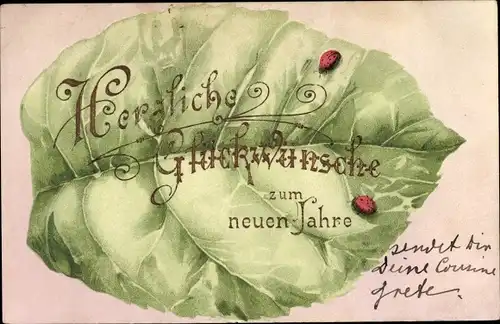 Herzliche
Glückwünsche
zum
neuen Jahre
sendet Dir
Deine Cousine
Grete.